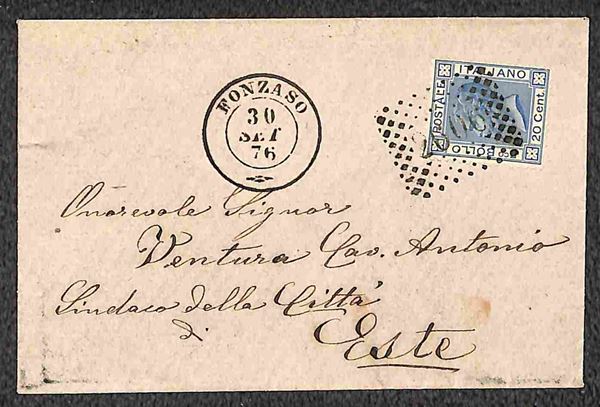 FONZASO
30
SET
76
POSTALE
ITALIANO
20 Cent.
BOLLO
Onorevole Signor
Ventura Cav. Antonio
Sindaco della Città
di
Este